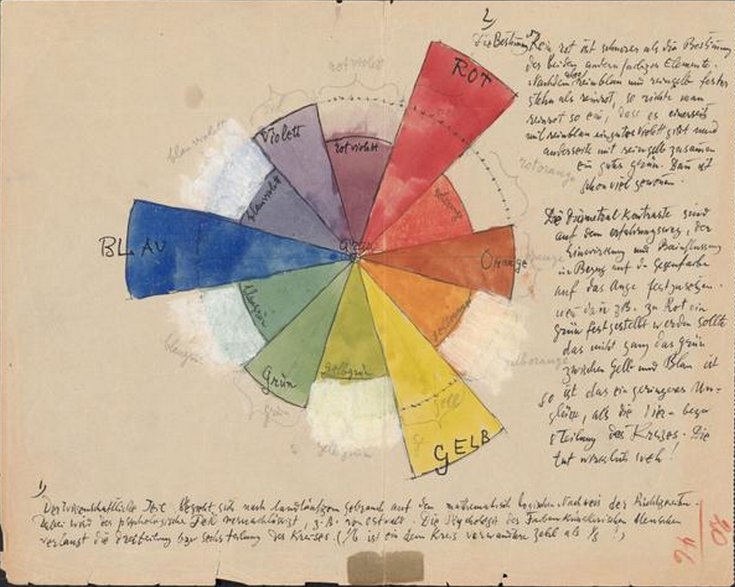 2)
Die Bestimmung
Rein rot ist schwerer als die Bestimmung
der beiden andern farbigen Elemente.
Nachdem aber reinblau und reingelb fester
stehn als reinrot, so richte man
reinrot so ein, dass es einerseits
mit reinblau ein gutes Violett gibt und
anderseits mit reingelb zusammen
ein gutes
ist
schon viel gewonnen.
Die Diametral Kontraste sind
auf dem erfahrungsweg, der
Einwirkung und Beeinflussung
in Bezug auf die Gegenfarbe
auf das Auge festzusetzen.
wenn dann z.B. zu Rot ein
grün festgestellt werden sollte
das nicht ganz das grün
zwischen Gelb und Blau ist
so ist das ein geringeres Un-
glück, als die
teilung des Kreises. Die
tut wirklich weh!
rotviolett
ROT
Violett
rotviolett
blauviolett
blauviolett
rotorange
rotorange
BLAU
Grau
Orange
orange
blaugrün
gelborange
blaugrün
gelborange
Grün
gelbgrün
gelb
grün
GELB
gelbgrün
1)
Der wissenschaftliche Teil bezieht sich nach landläufigem gebrauch auf den mathematisch logischen Nachweis der Richtigkeiten.
Dabei wird der psychologische Teil vernachlässigt, z.B. von Ostwald. Die Psychologie des Farbenkünstlerischen Menschen
verlangt die dreiteilung bzw sechsteilung des Kreises. (1/6 ist ein dem Kreis verwandtere Zahl als 1/8 !)